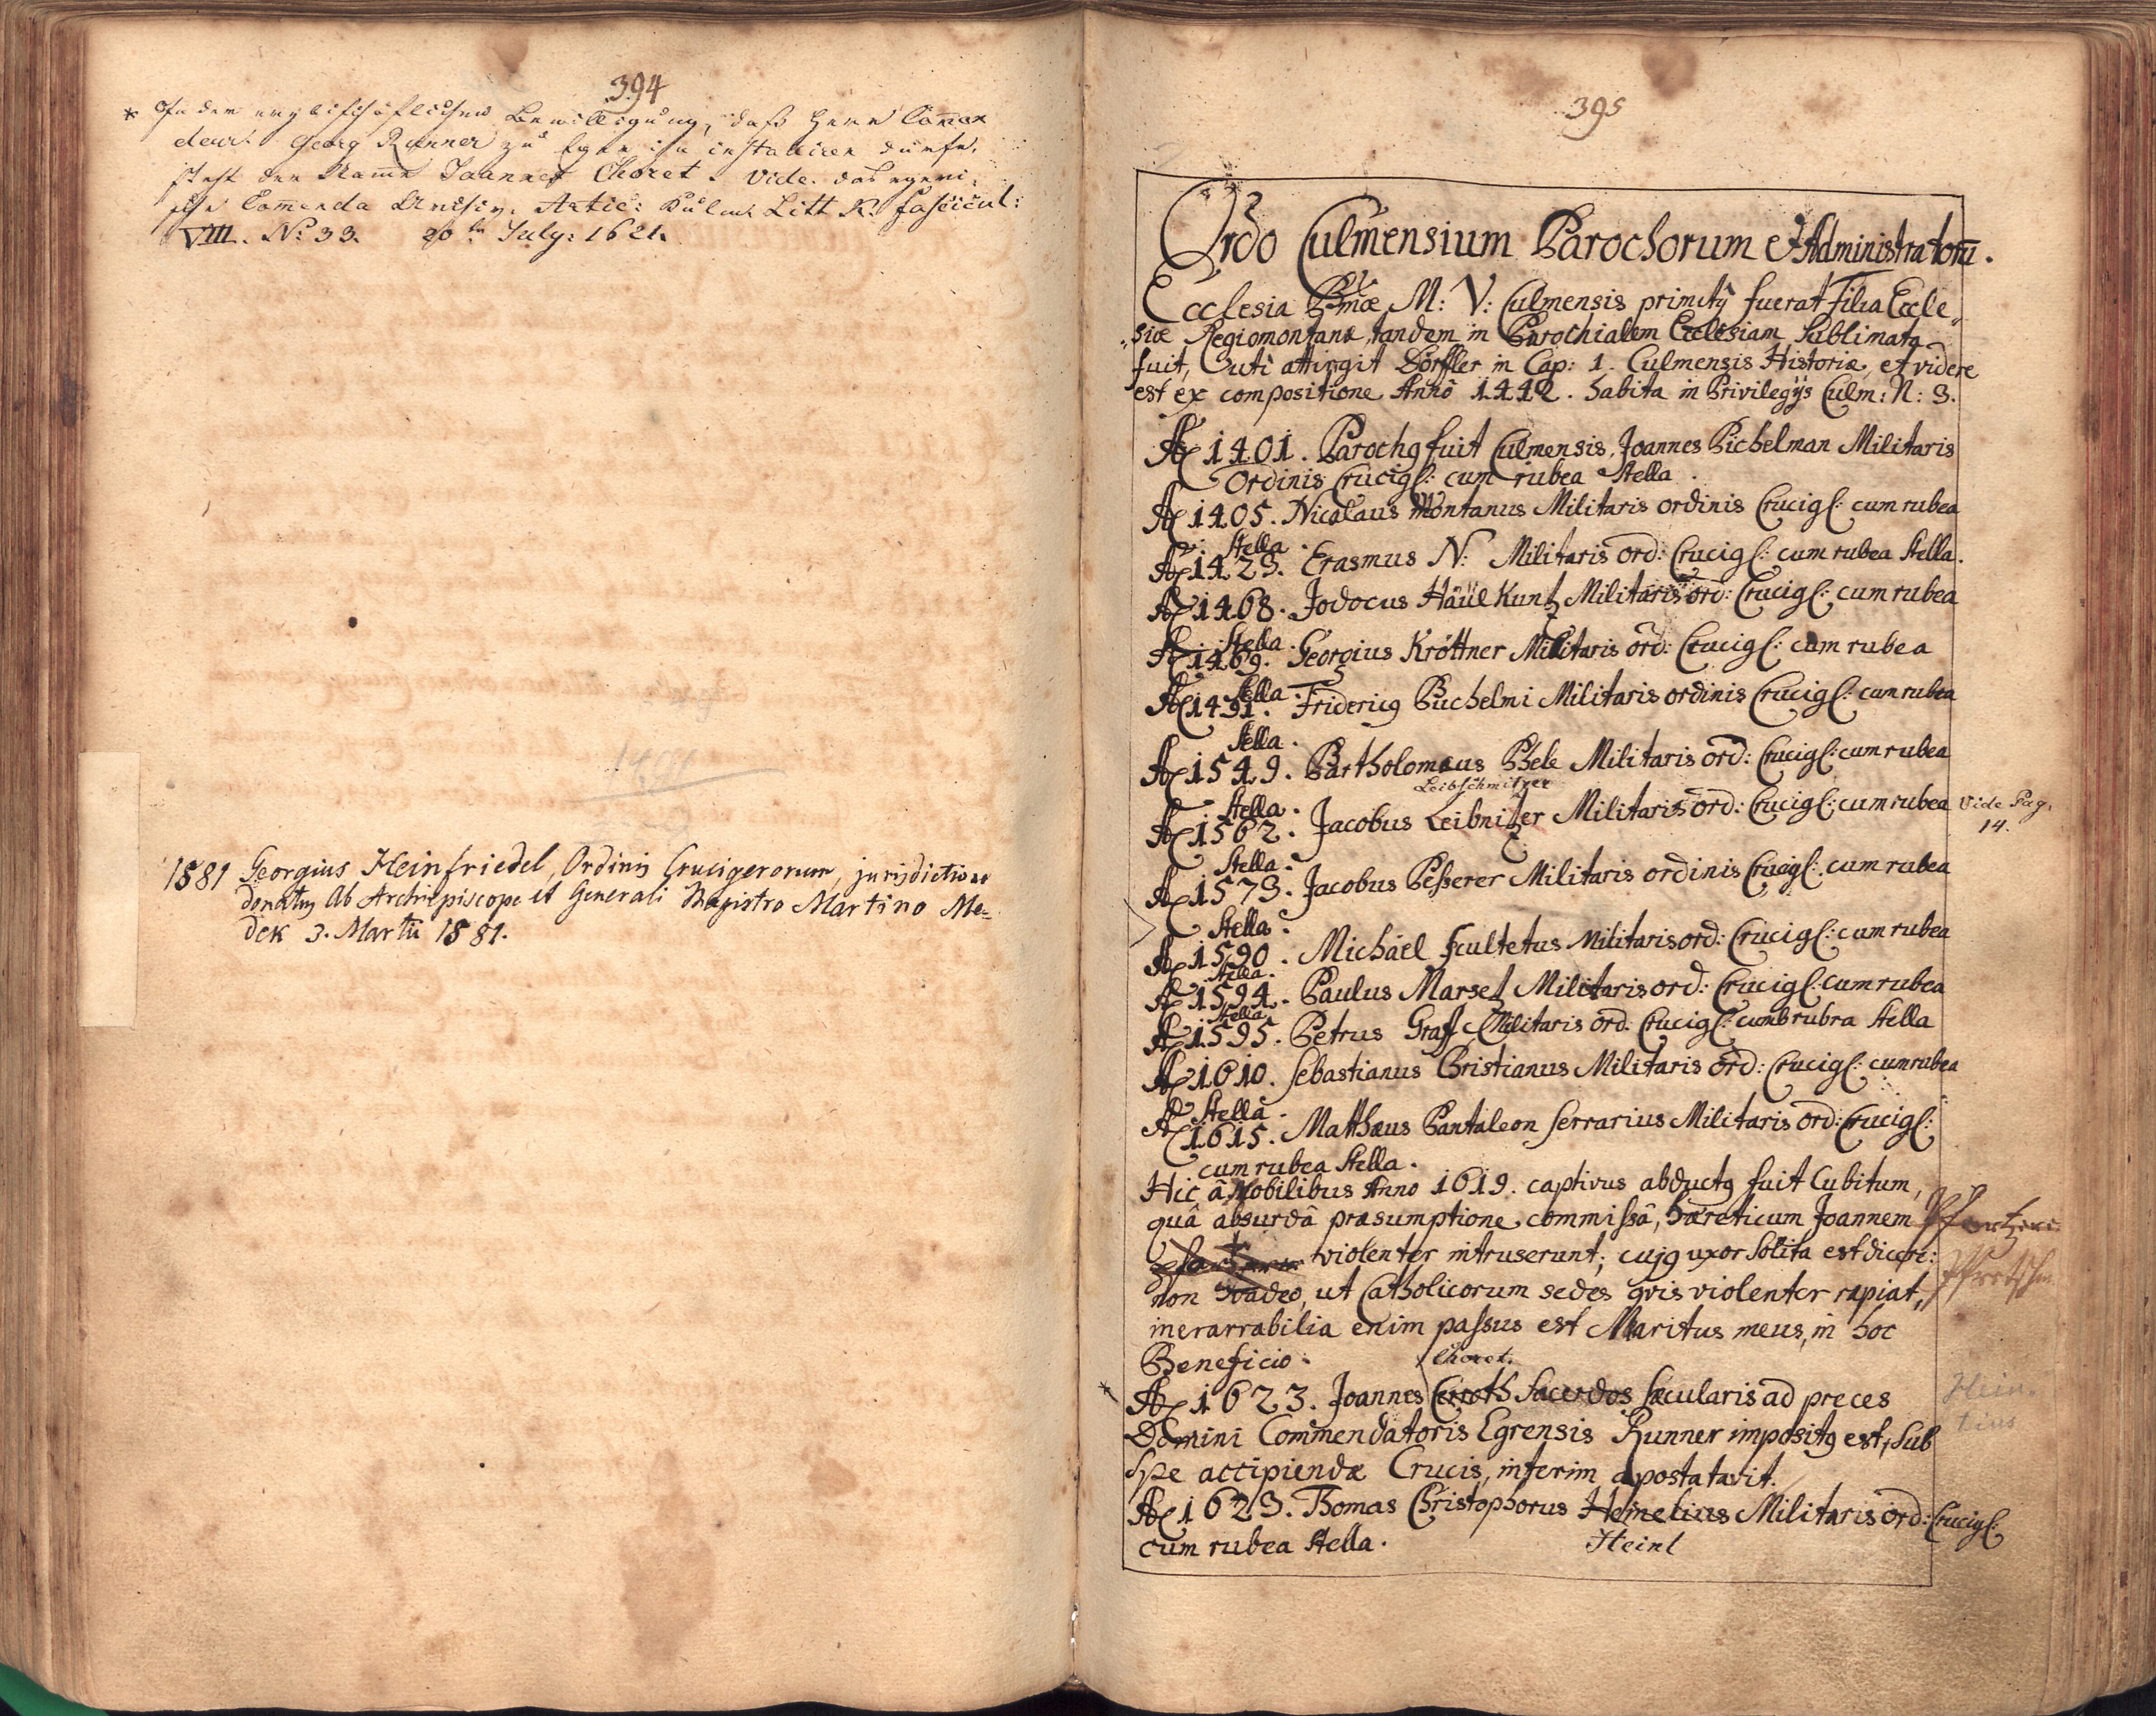 394
* In der erzbischöflichen Bewilligung, daß Herr Com̄an
deur Georg Runner zu Eger ihn installiren dürfe,
steht der Nam̄e Joannes Choret. Vide. das egeri¬
sche Com̄enda Archiv. Artic: Kulm. Litt K. fascicul:
VIII. No: 33. 20tn July: 1621.
1581 Georgius Heinfriedel, Ordinis Crucigerorum, jurisdictione
donatus ab Archiepiscopo et Generali Magistro Martino Me=
dek 3. Martii 1581.
395
Ordo Culmensium Parochorum et Administratorū.
Ecclesia Bmæ M: V: Culmensis primitÿ fuerat Filia Eccle„
„siæ Regiomontanæ, tandem in Parochialem Ecclesiam Sublimata
fuit, uti attingit Dörffler in Cap: 1. Culmensis Historiæ, et videre
est ex compositione Anno 1442. habita in Privilegÿs Culm: N: 3.
Ao 1401. Parochꝯ fuit Culmensis, Joannes Pichelman Militaris
Ordinis Crucig: cum rubea Stella.
Ao 1405. Nicolaus Montanus Militaris ordinis Crucig: cum rubea
Stella.
Ao 1423. Erasmus N: Militaris ord: Crucig: cum rubea Stella.
Ao 1468. Jodocus Häülkuntz Militaris ord: Crucig: cum rubea
Stella.
Ao 1469. Georgius Kröttner Militaris ord: Crucig: cum rubea
Stella.
Ao 1491. Fridericꝯ Puchelmi Militaris ordinis Crucig: cum rubea
Stella.
Ao 1549. Bartholomæus Phele Militaris ord: Crucig: cum rubea
Stella.
Leibschmitzer
Ao 1562. Jacobus Leibnitzer Militaris ord: Crucig: cum rubea
Vide Pag.
14.
Stella.
Ao 1573. Jacobus Peßerer Militaris ordinis Crucig: cum rubea
Stella.
Ao 1590. Michäel Scultetus Militaris ord: Crucig: cum rubea
Stella.
Ao 1594. Paulus Marsetz Militaris ord: Crucig: cum rubea
Stella.
Ao 1595. Petrus Graff Militaris ord. Crucig: cum rubra Stella
Ao 1610. Sebastianus Christianus Militaris ord: Crucig: cum rubea
Stella.
Ao 1615. Matthæus Pantaleon Serrarius Militaris ord: Crucig:
cum rubea Stella.
Hic â Nobilibus Anno 1619. captivus abductꝯ fuit Cubitum,
quâ absurdâ præsumptione commissâ, hæreticum Joannem
violenter intruserunt; cujꝯ uxor Solita est dicere:
non suadeo, ut Catholicorum sedes qvis violenter rapiat,
inerarrabilia enim passus est Maritus meus, in hoc
Beneficio.
Choret.
* Ao 1623. Joannes Cerroth Sacerdos Sæcularis ad preces
Domini Commendatoris Egrensis Runner impositꝯ est, sub
Spe accipiendæ Crucis, interim apostatavit.
Hein.
tius
Ao 1623. Thomas Christophorus Heinelius Militaris ord: Crucig:
cum rubea Stella.
Heinl